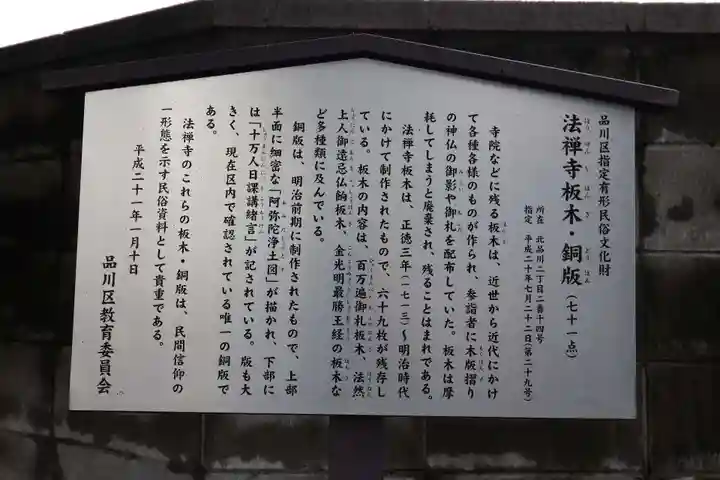 品川区指定有形民俗文化財
法禅寺板木・銅版（七十一点）
所在 北品川二丁目二番十四号
指定 平成二十年七月二十二日（第二十九号）
寺院などに残る板木は、近世から近代にかけ
て各種各様のものが作られ、参詣者に木版摺り
の神仏の御影や御札を配布していた。板木は摩
耗してしまうと廃棄され、残ることはまれである。
法禅寺板木は、正徳三年（一七一三）～明治時代
にかけて制作されたもので、六十九枚が残存し
ている。板木の内容は、百万遍御札板木、法然
上人御遠忌仏餉板木、金光明最勝王経の板木な
ど多種類に及んでいる。
銅版は、明治前期に制作されたもので、上部
半面に細密な「阿弥陀浄土図」が描かれ、下部に
は「十万人日課講緒言」が記されている。版も大
きく、現在区内で確認されている唯一の銅版で
ある。
法禅寺のこれらの板木・銅版は、民間信仰の
一形態を示す民俗資料として貴重である。
平成二十一年一月十日
品川区教育委員会